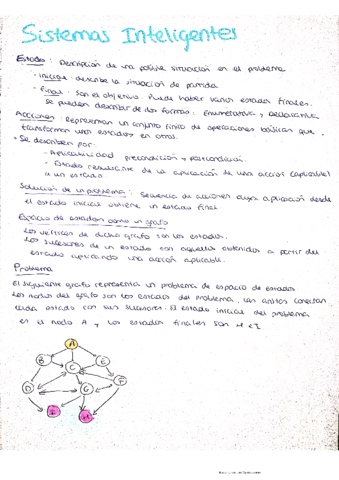 Sistemas Inteligentes
Estado: Descripción de una posible situación en el problema
- Inicial: describe la situación de partida
- Final: Son el objetivo. Puede haber varios estados finales.
Se pueden describir de dos formas: Enumerativa y Declarativa
Acciones: representan un conjunto finito de operaciones básicas que
transforman unos estados en otros.
• Se describen por:
- Aplicabilidad precondición y postcondición
- Estado resultante de la aplicación de una acción (aplicable)
a un estado
Solución de un problema: Secuencia de acciones cuya aplicación desde
el estado inicial obtiene un estado final
Espacio de estados como un grafo
Los vértices de dicho grafo son los estados.
Los sucesores de un estado son aquellos obtenidos a partir del
estado aplicando una acción aplicable.
Problema
El siguiente grafo representa un problema de espacio de estados.
Los nodos del grafo son los estados del problema, las aristas conectan
cada estado con sus sucesores. El estado inicial del problema
es el nodo A y los estados finales son H e I
A
B C E
D G F
I H